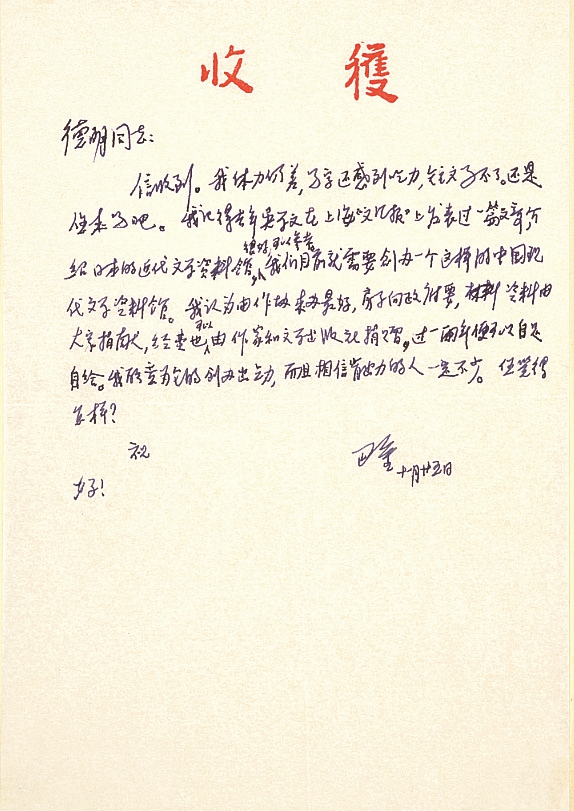 收 穫
德明同志:
信收到。我体力仍差,写字还感到吃力,短文写不了。还是
你来写吧。我记得去年吴子文在上海《文汇报》上发表过一篇文章介
很好,可以参考
绍日本的近代文学资料馆,我们目前就需要创办一个这样的中国现
代文学资料馆。我认为由作协来办最好,房子向政府要,资料由
大家捐献,经费也可以由作家和文学出版社捐赠,过一两年便可以自足
自给。我愿意为它的创办出力,而且相信肯出力的人一定不少。你觉得
怎样?
祝
好!
巴金
十一月廿五日